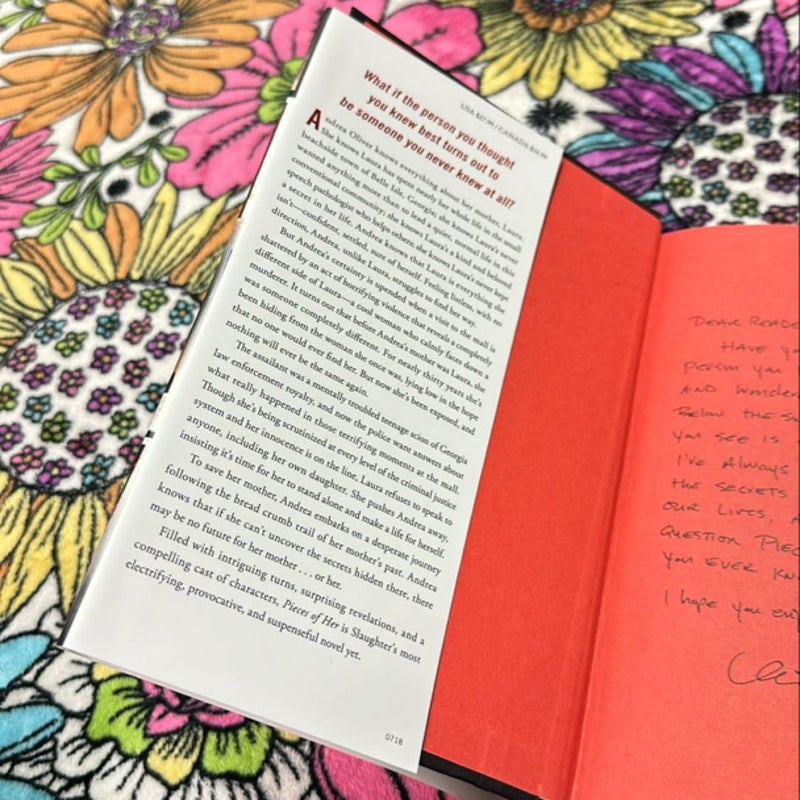 USA $27.99 / CANADA $34.99
What if the person you thought
you knew best turns out to
be someone you never knew at all?
Andrea Oliver knows everything about her mother, Laura.
She knows Laura has spent nearly her whole life in the small
beachside town of Belle Isle, Georgia; she knows Laura's never
wanted anything more than to lead a quiet, normal life in this
conventional community; she knows Laura's a kind and beloved
speech pathologist who helps others; she knows Laura's never kept
a secret in her life. Andrea knows that Laura is everything she
isn't—confident, settled, sure of herself. Feeling listless, with no
direction, Andrea, unlike Laura, struggles to find her way.
But Andrea's certainty is upended when a visit to the mall is
shattered by an act of horrifying violence that reveals a completely
different side of Laura—a cool woman who calmly faces down a
murderer. It turns out that before Andrea's mother was Laura, she
was someone completely different. For nearly thirty years she's
been hiding from the woman she once was, lying low in the hope
that no one would ever find her. But now she's been exposed, and
nothing will ever be the same again.
The assailant was a mentally troubled teenage scion of Georgia
law enforcement royalty, and now the police want answers about
what really happened in those terrifying moments at the mall.
Though she's being scrutinized at every level of the criminal justice
system and her innocence is on the line, Laura refuses to speak to
anyone, including her own daughter. She pushes Andrea away,
insisting it's time for her to stand alone and make a life for herself.
To save her mother, Andrea embarks on a desperate journey
following the bread crumb trail of her mother's past. Andrea
knows that if she can't uncover the secrets hidden there, there
may be no future for her mother . . . or her.
Filled with intriguing turns, surprising revelations, and a
compelling cast of characters, Pieces of Her is Slaughter's most
electrifying, provocative, and suspenseful novel yet.
0718
DEAR READE
HAVE YO
PERSON YOU
AND WONDER
BELOW THE SU
YOU SEE IS
I'VE ALWAYS
THE SECRETS
OUR LIVES, A
QUESTION PIEC
YOU EVER KN
I hope you en